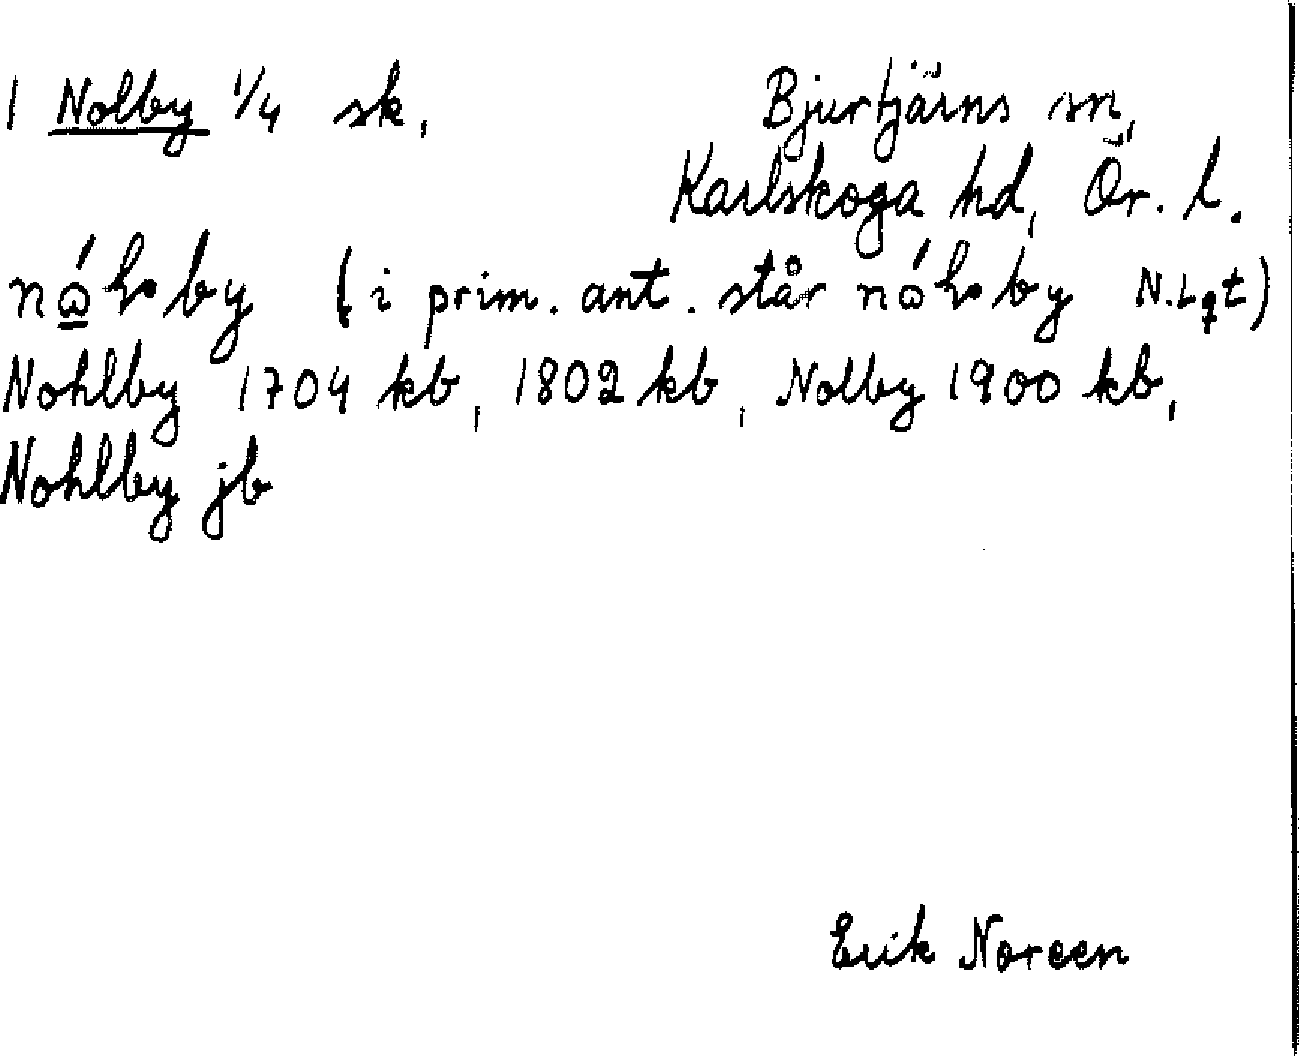 1 Nolby 1/4 sk,
Bjurtjärns sn,
Karlskoga hd, Ör. l.
(i prim. ant. står
Nohlby 1704 kb, 1802 kb, Nolby 1900 kb,
Nohlby jb
Erik Noreen